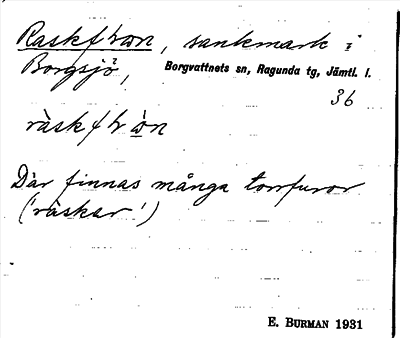 Raskflöön, sankmark i
Borgsjö, Borgvattnets sn, Ragunda tg, Jämtl. l.
36
Där finnas många torrfuror
('ràskar')
E. BURMAN 1931